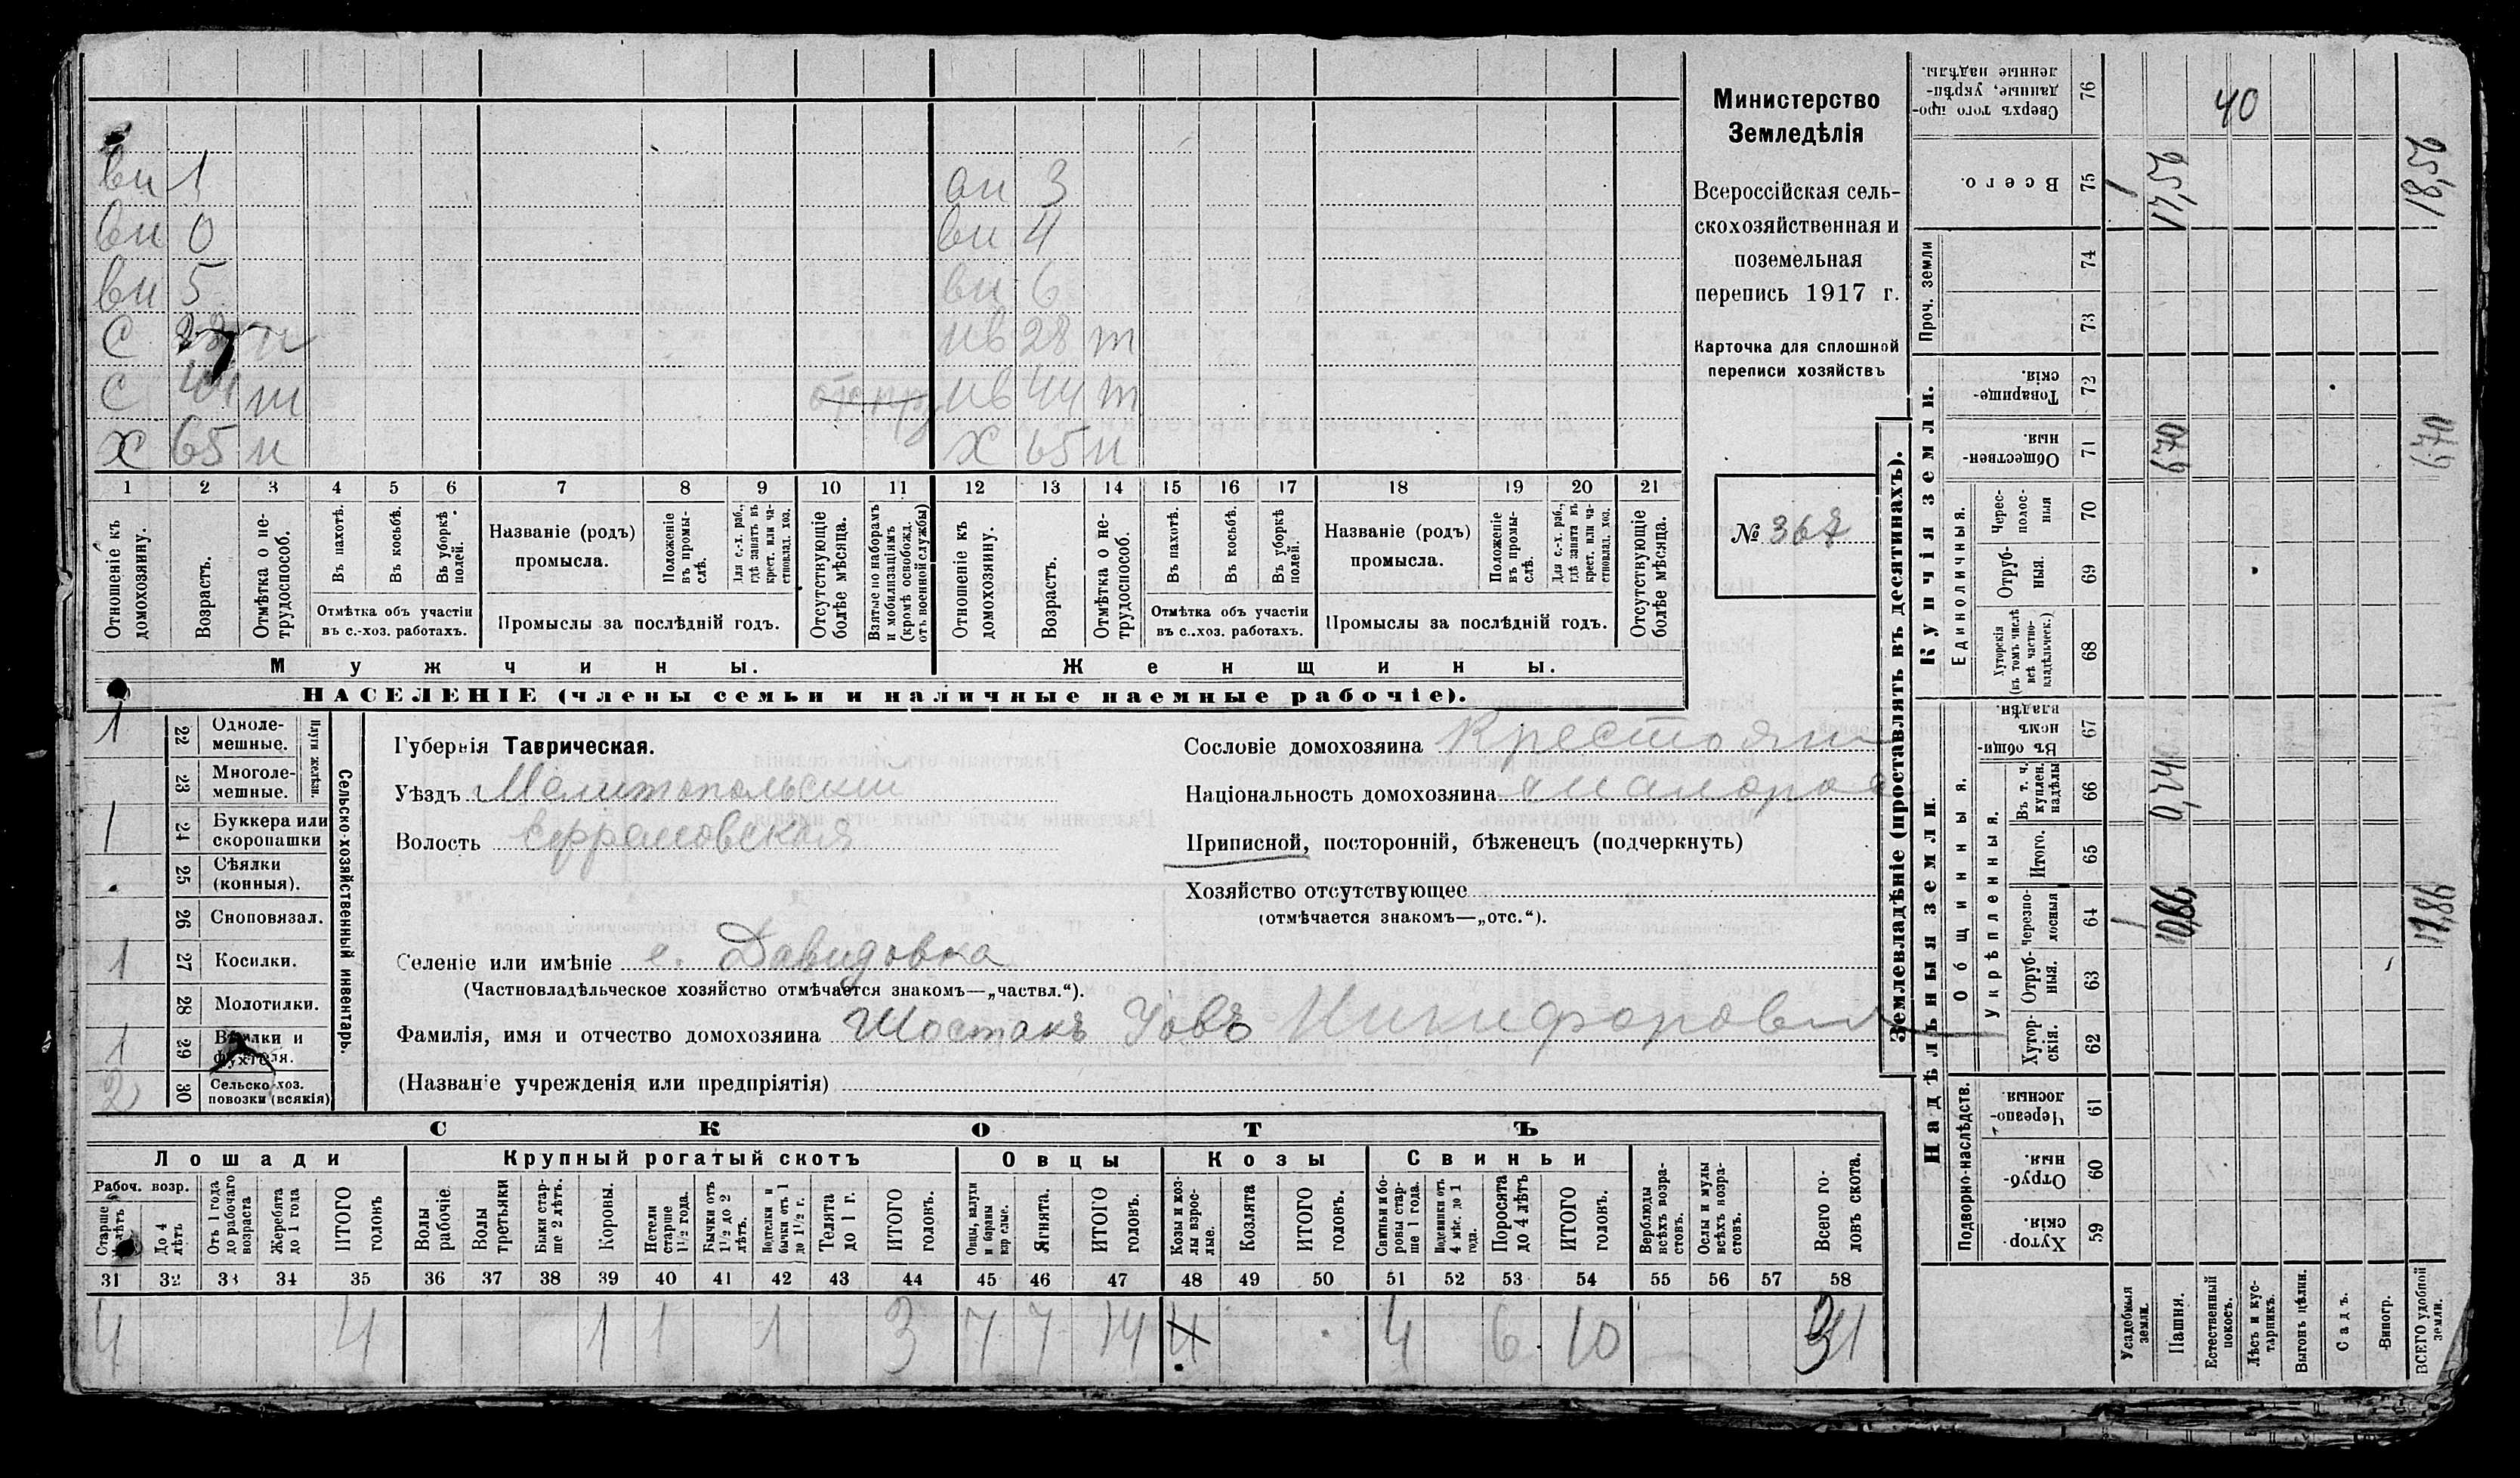 вн 1 вн 3
вн 0 вн 4
вн 5 вн 6
с нв 28 т
с т нв 44 т
х 65 н х 65 н
1 2 3 4 5 6 7 8 9 10 11 12 13 14 15 16 17 18 19 20 21
Отношеніе къ домохозяину.
Возрастъ.
Отмѣтка о не-трудоспособ.
Въ пахотѣ.
Въ косьбѣ.
Въ уборкѣ полей.
Отмѣтка объ участіи
въ с.-хоз. работахъ.
Названіе (родъ)
промысла.
Положеніе въ промы-слѣ.
Для с.-х. раб., гдѣ занятъ въ крест. или ча-стновлад. хоз.
Промыслы за послѣдній годъ.
Отсутствующіе болѣе мѣсяца.
Взятые по наборамъ и мобилизаціямъ (кромѣ освобожд. отъ военной службы)
Отношеніе къ домохозяину.
Возрастъ.
Отмѣтка о не-трудоспособ.
Въ пахотѣ.
Въ косьбѣ.
Въ уборкѣ полей.
Отмѣтка объ участіи
въ с.-хоз. работахъ.
Названіе (родъ)
промысла.
Положеніе въ промы-слѣ.
Для с.-х. раб., гдѣ занята въ крест. или ча-стновлад. хоз.
Промыслы за послѣдній годъ.
Отсутствующіе болѣе мѣсяца.
Мужчины. Женщины.
НАСЕЛЕНІЕ (члены семьи и наличные наемные рабочіе).
Министерство
Земледѣлія
Всероссійская сель-
скохозяйственная и
поземельная
перепись 1917 г.
Карточка для сплошной
переписи хозяйствъ
№ 367
1 22 Одноле-мешные.
23 Многоле-мешные.
Плуги желѣзн.
1 24 Буккера или скоропашки
25 Сѣялки (конныя).
26 Сноповязал.
1 27 Косилки.
28 Молотилки.
1 29 Вѣялки и фухтеля.
2 30 Сельско-хоз. повозки (всякія)
Сельско-хозяйственный инвентарь.
Губернія Таврическая.
Уѣздъ Мелитопольскій
Волость Ефремовская
Сословіе домохозяина Крестьянин
Національность домохозяина малорос
Приписной, посторонній, бѣженецъ (подчеркнуть)
Хозяйство отсутствующее
(отмѣчается знакомъ—„отс.“).
Селеніе или имѣніе с. Давидовка
(Частновладѣльческое хозяйство отмѣчается знакомъ—„частвл.“).
Фамилія, имя и отчество домохозяина Шостакъ Іовъ Никифорович
(Названіе учрежденія или предпріятія)
СКОТЪ
Лошади Крупный рогатый скотъ Овцы Козы Свиньи
Рабоч. возр.
Старше 4 лѣтъ
До 4 лѣтъ
Отъ 1 года до рабочаго возраста
Жеребята до 1 года
ИТОГО головъ
Волы рабочіе.
Волы третьяки
Быки стар-ше 2 лѣтъ.
Коровы.
Нетели старше 1½ года.
Бычки отъ 1½ до 2 лѣтъ.
Подтелки и бычки отъ 1 до 1½ г.
Телята до 1 г.
ИТОГО головъ.
Овцы, валухи и бараны взрослые.
Ягнята.
ИТОГО головъ.
Козы и коз-лы взрос-лые.
Козлята
ИТОГО головъ.
Свиньи и бо-ровы стар-ше 1 года.
Подсвинки отъ 4 мѣс. до 1 года.
Поросята до 4 лѣтъ
ИТОГО головъ.
Верблюды всѣхъ возра-стовъ.
Ослы и мулы всѣхъ возра-стовъ.
Всего го-ловъ скота.
31 32 33 34 35 36 37 38 39 40 41 42 43 44 45 46 47 48 49 50 51 52 53 54 55 56 57 58
4 4 1 1 1 3 7 7 14 4 4 6 10 31
Землевладѣніе (проставлять въ десятинахъ).
Купчія земли.
Надѣльныя земли.
Сверхъ того про-данные, укрѣп-ленные надѣлы. 76 40
Всего. 75 17,56 18,56
Проч. земли 74
73
Товарище-скія. 72
Обществен-ныя 71 6,70 6,70
Единоличныя.
Черес-полос-ныя 70
Отруб-ныя. 69
Хуторскія (въ томъ числѣ всѣ частно-владѣльческ.) 68
Общинныя.
Въ общин-номъ владѣн. 67
Укрѣпленныя.
Въ т. ч. куплен. надѣлы 66
Итого. 65
Черезпо-лосныя 64 10,86 11,86
Отруб-ныя. 63
Хутор-скія. 62
Подворно-наслѣдств.
Черезпо-лосныя 61
Отруб-ныя 60
Хутор-скія. 59
Усадебныя земли.
Пашня.
Естественный покосъ.
Лѣсъ и кус-тарникъ.
Выгонъ цѣлин.
Садъ.
Виногр.
ВСЕГО удобной земли.